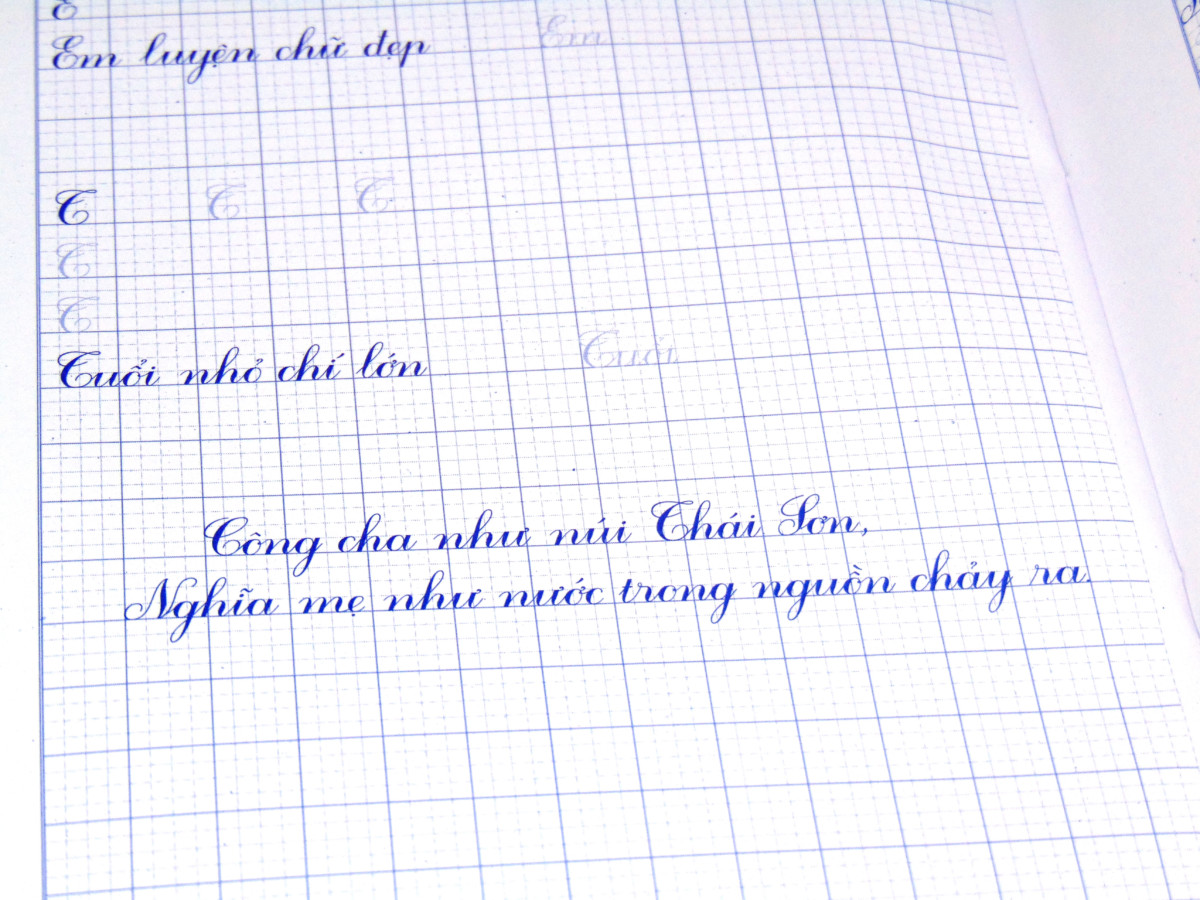 E
Em luyện chữ đẹp Em
T T T
T
T
Tuổi nhỏ chí lớn Tuổi
Công cha như núi Thái Sơn,
Nghĩa mẹ như nước trong nguồn chảy ra.